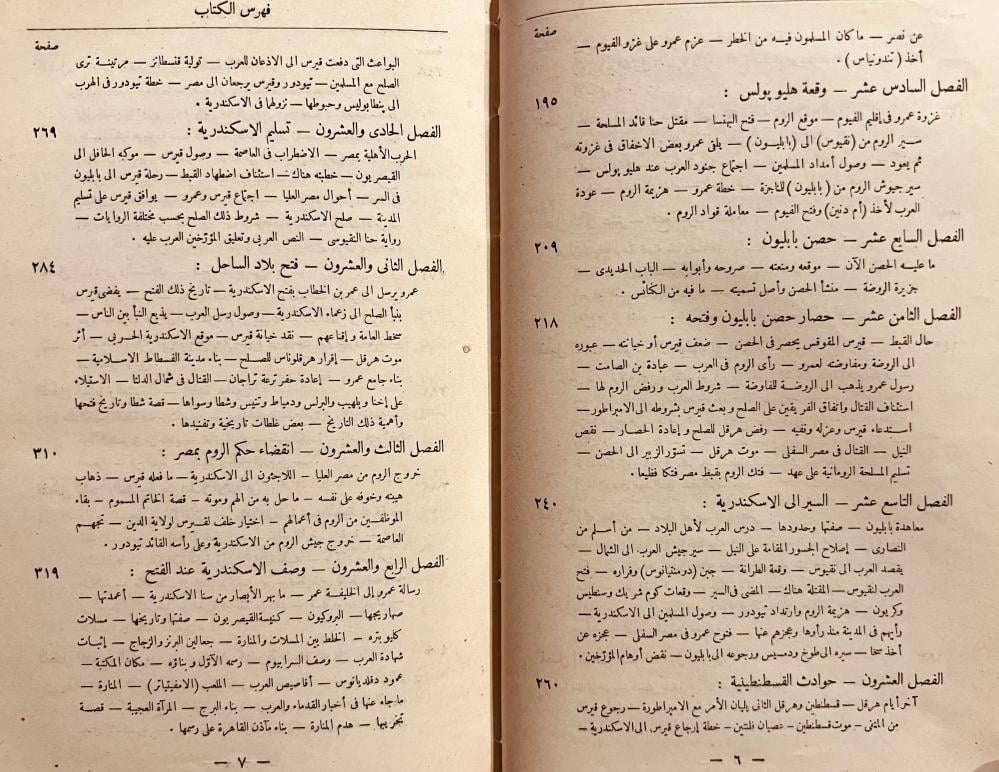 صفحة
عن فصر — ما كان المسلمون فيه من الخطر — عزم عمرو على غزو الفيوم —
أخذ ( تندونياس ) .
الفصل السادس عشر — وقعة هليو پولس : ١٩٥
غزوة عمرو فى إقليم الفيوم — موقع الروم — فتح البهنسا — مقتل حنا قائد المسلحة —
سير الروم من (نقيوس) الى (بابليون) — يلقى عمرو بعض الاخفاق فى غزوته
ثم يعود — وصول أمداد المسلمين — اجتماع جنود العرب عند هليو پولس —
سير جيوش الروم من ( بابليون ) للناجزة — خطة عمرو — هزيمة الروم — عودة
العرب لأخذ (أم دنين) وفتح الفيوم — معاملة قواد الروم .
الفصل السابع عشر — حصن بابليون : ٢٠٩
ما عليه الحصن الآن — موقعه ومنعته — صروحه وأبوابه — الباب الحديدى —
جزيرة الروضة — منشأ الحصن وأصل تسميته — ما فيه من الكنائس .
الفصل الثامن عشر — حصار حصن بابليون وفتحه : ٢١٨
حال القبط — قيرس المقوقس يحصر فى الحصن — ضعف قيرس أو خيانته — عبوره
الى الروضة ومفاوضته لعمرو — رأى الروم فى العرب — عبادة بن الصامت —
رسول عمرو يذهب الى الروضة للفاوضة — شروط العرب ورفض الروم لها —
استئناف القتال واتفاق الفريقين على الصلح وبعث قيرس بشروطه الى الامبراطور —
استدعاء قيرس وعزله ونفيه — رفض هرقل للصلح وإعادة الحصار — نقص
النيل — القتال فى مصر السفلى — موت هرقل — تسوّر الزبير الى الحصن —
تسليم المسلحة الرومانية على عهد — فتك الروم بقبط مصر فتكا فظيعا .
الفصل التاسع عشر — السير الى الاسكندرية : ٢٤٠
معاهدة بابليون — صفتها وحدودها — درس العرب لأهل البلاد — من أسلم من
النصارى — إصلاح الجسور المقامة على النيل — سير جيش العرب الى الشمال —
يقصد العرب الى نقيوس — وقعة الطرانة — جبن (دومنتيانوس) وفراره — فتح
العرب لنقيوس — المقتلة هناك — المضى فى السير — وقعات كوم شريك وسنطيس
وكريون — هزيمة الروم وارتداد تيودور — وصول المسلمين الى الاسكندرية —
رأيهم فى المدينة منذ رأوها وعجزهم عنها — فتوح عمرو فى مصر السفلى — عجزه عن
أخذ سخا — سيره الى طوخ ودمسيس ورجوعه الى بابليون — نقض أوهام المؤرّخين .
الفصل العشرون — حوادث القسطنطينية : ٢٦٠
آخر أيام هرقل — قسطنطين وهرقل الثانى يليان الأمر مع الامبراطورة — رجوع قيرس
من المنفى — موت قسطنطين — عصيان فلنتين — خطة إرجاع قيرس الى الاسكندرية —
— ٦ —
فهرس الكتاب
صفحة
البواعث التى دفعت قيرس الى الاذعان للعرب — تولية قنسطانز — مرتينة ترى
الصلح مع المسلمين — تيودور وقيرس يرجعان الى مصر — خطة تيودور فى الهرب
الى پنطابوليس وحبوطها — نزولهما فى الاسكندرية .
الفصل الحادى والعشرون — تسليم الإسكندرية : ٢٦٩
الحرب الأهلية بمصر — الاضطراب فى العاصمة — وصول قيرس — موكبه الحافل الى
القيصريون — خطبته هناك — استئناف اضطهاد القبط — رحلة قيرس الى بابليون
فى السر — أحوال مصر العليا — اجتماع قيرس وعمرو — يوافق قيرس على تسليم
المدينة — صلح الاسكندرية — شروط ذلك الصلح بحسب مختلفة الروايات —
رواية حنا النقيوسى — النص العربى وتعليق المؤرّخين العرب عليه .
الفصل الثانى والعشرون — فتح بلاد الساحل : ٢٨٤
عمرو يرسل الى عمر بن الخطاب بفتح الاسكندرية — تاريخ ذلك الفتح — يفضى قيرس
بنبأ الصلح الى زعماء الاسكندرية — وصول رسل العرب — يذيع النبأ بين الناس —
سخط العامة وإقناعهم — نقد خيانة قيرس — موقع الاسكندرية الحربى — أثر
موت هرقل — إقرار هرقلوناس للصلح — بناء مدينة الفسطاط الاسلامية —
بناء جامع عمرو — إعادة حفر ترعة تراجان — القتال فى شمال الدلتا — الاستيلاء
على إخنا وبلهيب والبرلس ودمياط وتنيس وشطا وسواها — قصة شطا وتاريخ فتحها
وأهمية ذلك التاريخ — بعض غلطات تاريخية وتفنيدها .
الفصل الثالث والعشرون — انقضاء حكم الروم بمصر : ٣١٠
خروج الروم من مصر العليا — اللاجئون الى الاسكندرية — ما فعله قيرس — ذهاب
هيبته وخوفه على نفسه — ما حل به من الهم وموته — قصة الخاتم المسموم — بقاء
الموظفين من الروم فى أعمالهم — اختيار خلف لقيرس لولاية الدين — تجهم
العاصمة — خروج جيش الروم من الاسكندرية وعلى رأسه القائد تيودور .
الفصل الرابع والعشرون — وصف الاسكندرية عند الفتح : ٣١٩
رسالة عمرو إلى الخليفة عمر — ما بهر الأبصار من سنا الاسكندرية — أعمدتها —
صهاريجها — البروكيون — كنيسة القيصريون — صفتها وتاريخها — مسلات
كليوبتره — الخلط بين المسلات والمنارة — جعالين البرنز والزجاج — إثبات
شهادة العرب — وصف السرابيوم — رسمه الأوّل وبناؤه — مكان المكتبة —
عمود دقلديانوس — أقاصيص العرب — الملعب (الامفيتياتر) — المنارة —
ما جاء عنها فى أخبار القدماء والعرب — بناء البرج — المرآة العجيبة — قصة
تخريبها — هدم المنارة — بناء مآذن القاهرة على رسمها .
— ٧ —